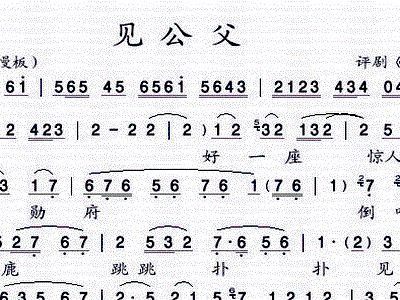 见公父
慢板） 评剧《
6i | 565 45 656i 5643 | 2123 434 04
2 423 | 2-22 | 2 ) 12 532 132 | 2 5
好 一 座 惊人
3 17 | 676 56 76 1(76 | 1) 27
勋 府 倒
527 67 | 2 532 7·656 | 1·(2) 3
鹿 跳跳 扑 扑 见